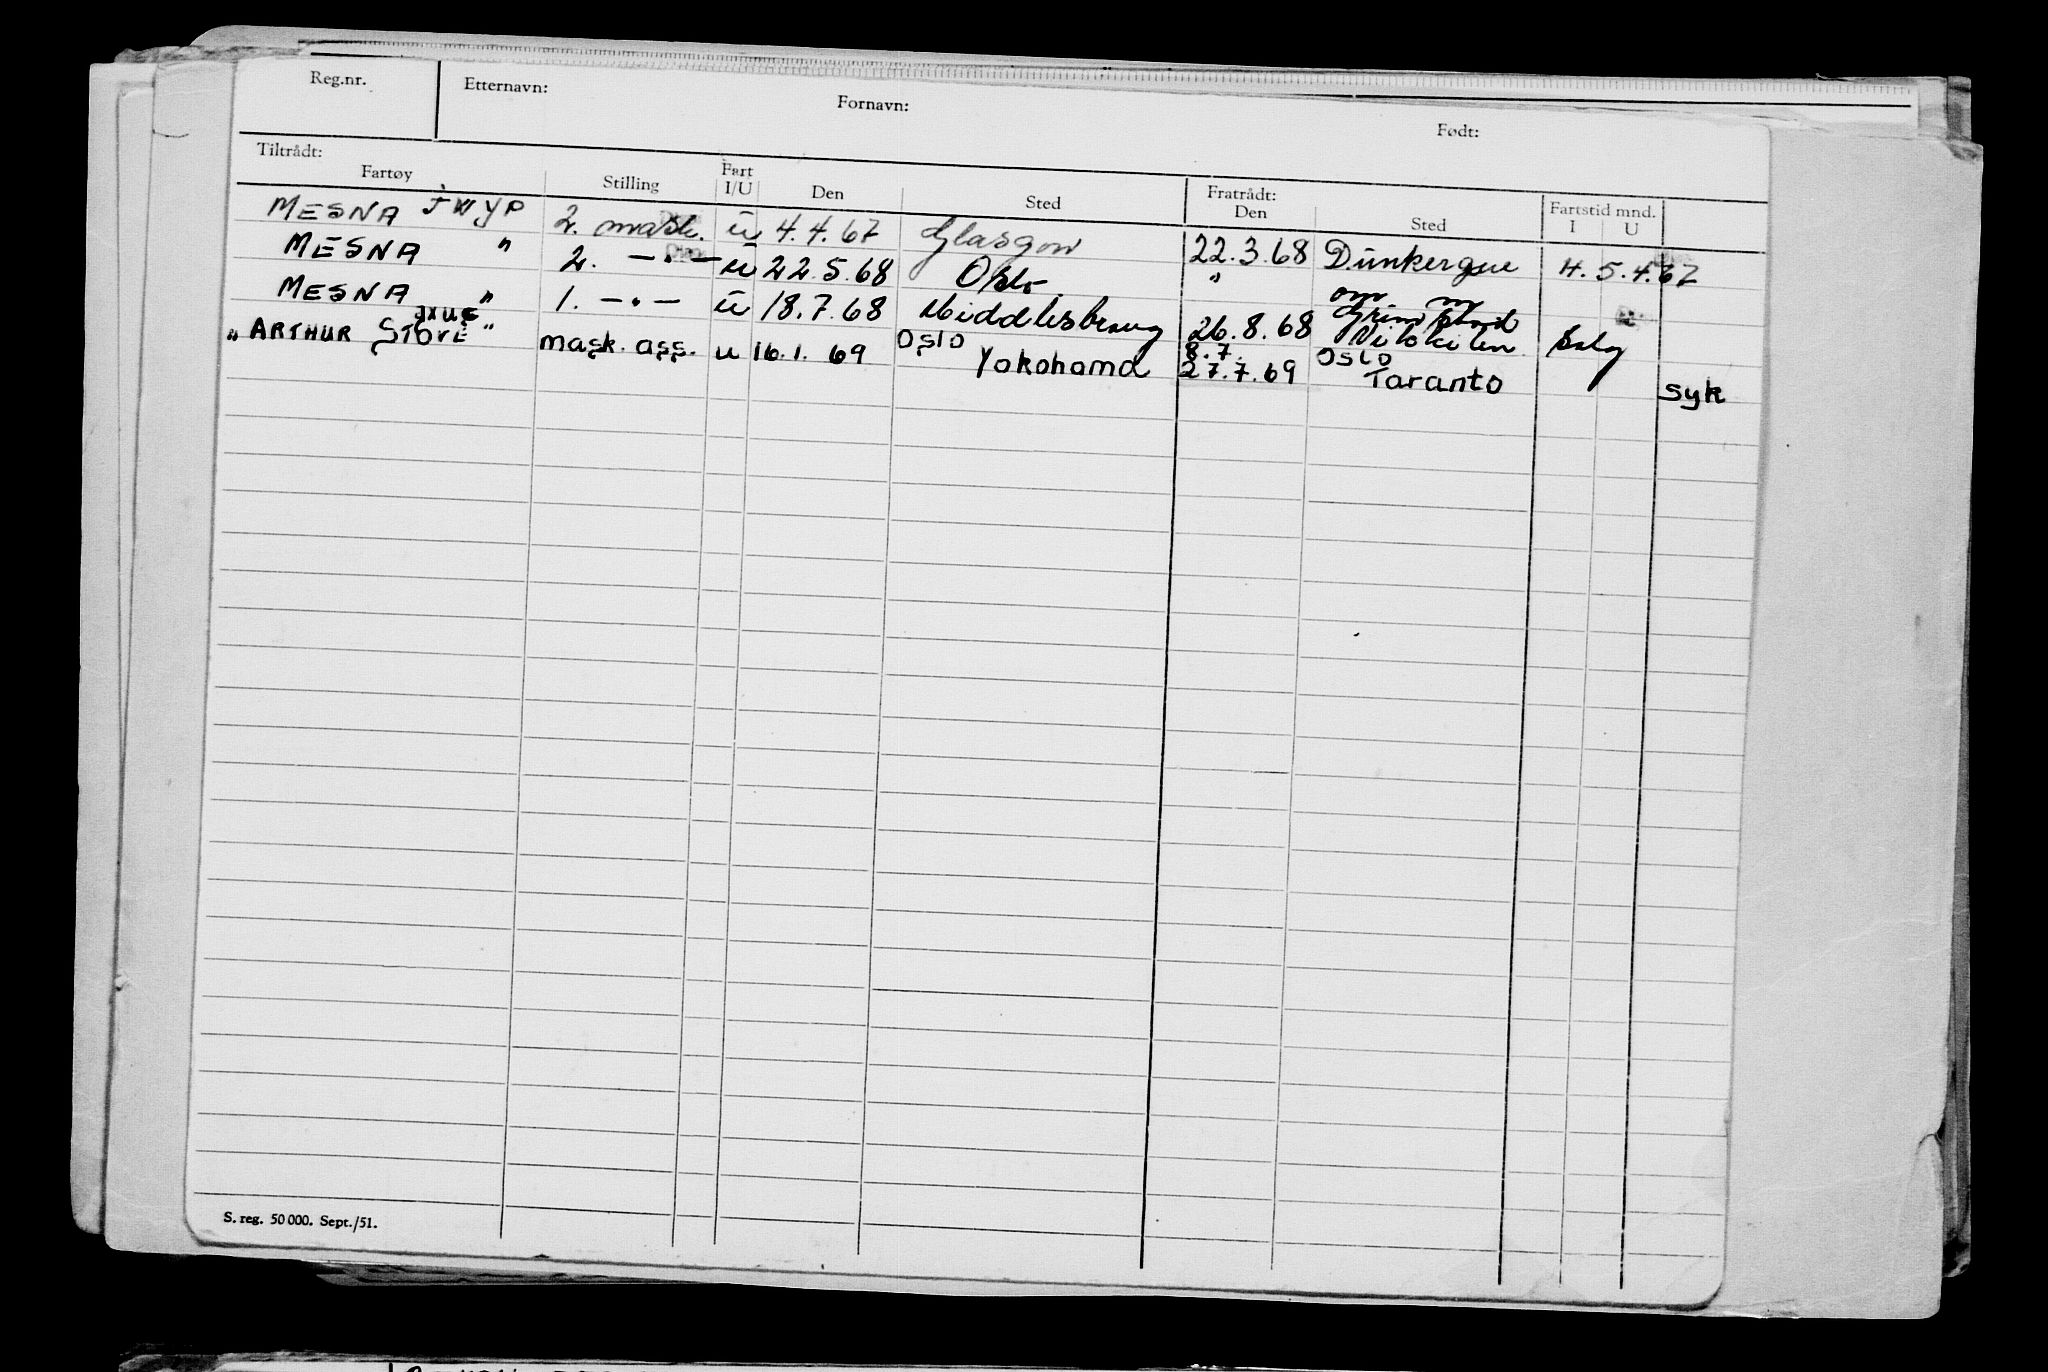 Reg.nr. Etternavn: Fornavn: Født:
Tiltrådt: Fratrådt:
Fartøy Stilling Fart I/U Den Sted Den Sted Fartstid mnd. I U
MESNA JWYP 2. mask. ü 4.4.67 Glasgow 22.3.68 Dünkerque H. 5.4.67
MESNA " 2. —"— ü 22.5.68 Oslo " om m
MESNA " 1. —"— ü 18.7.68 Middlesbroug 26.8.68 Grimstad Vikkilen Salg
JXUE
"ARTHUR STOVE" mask. ass. u 16.1.69 Oslo 8.7. Oslo
Yokohama 27.7.69 Taranto syk
S. reg. 50 000. Sept./51.